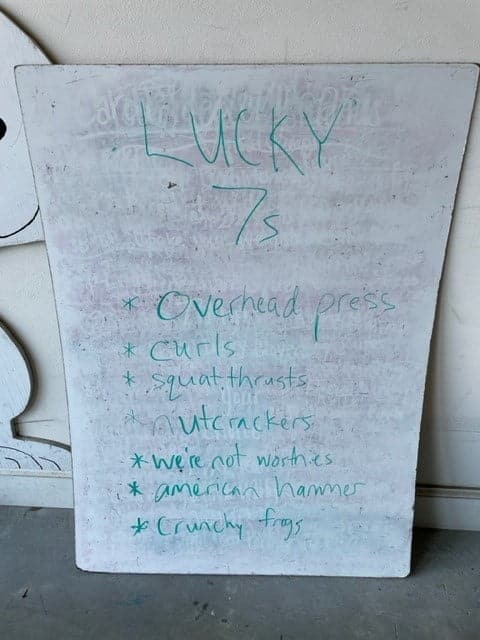 LUCKY
7s
* Overhead press
* curls
* squat thrusts
* nutcrackers
* we're not worthies
* american hammer
* Crunchy frogs